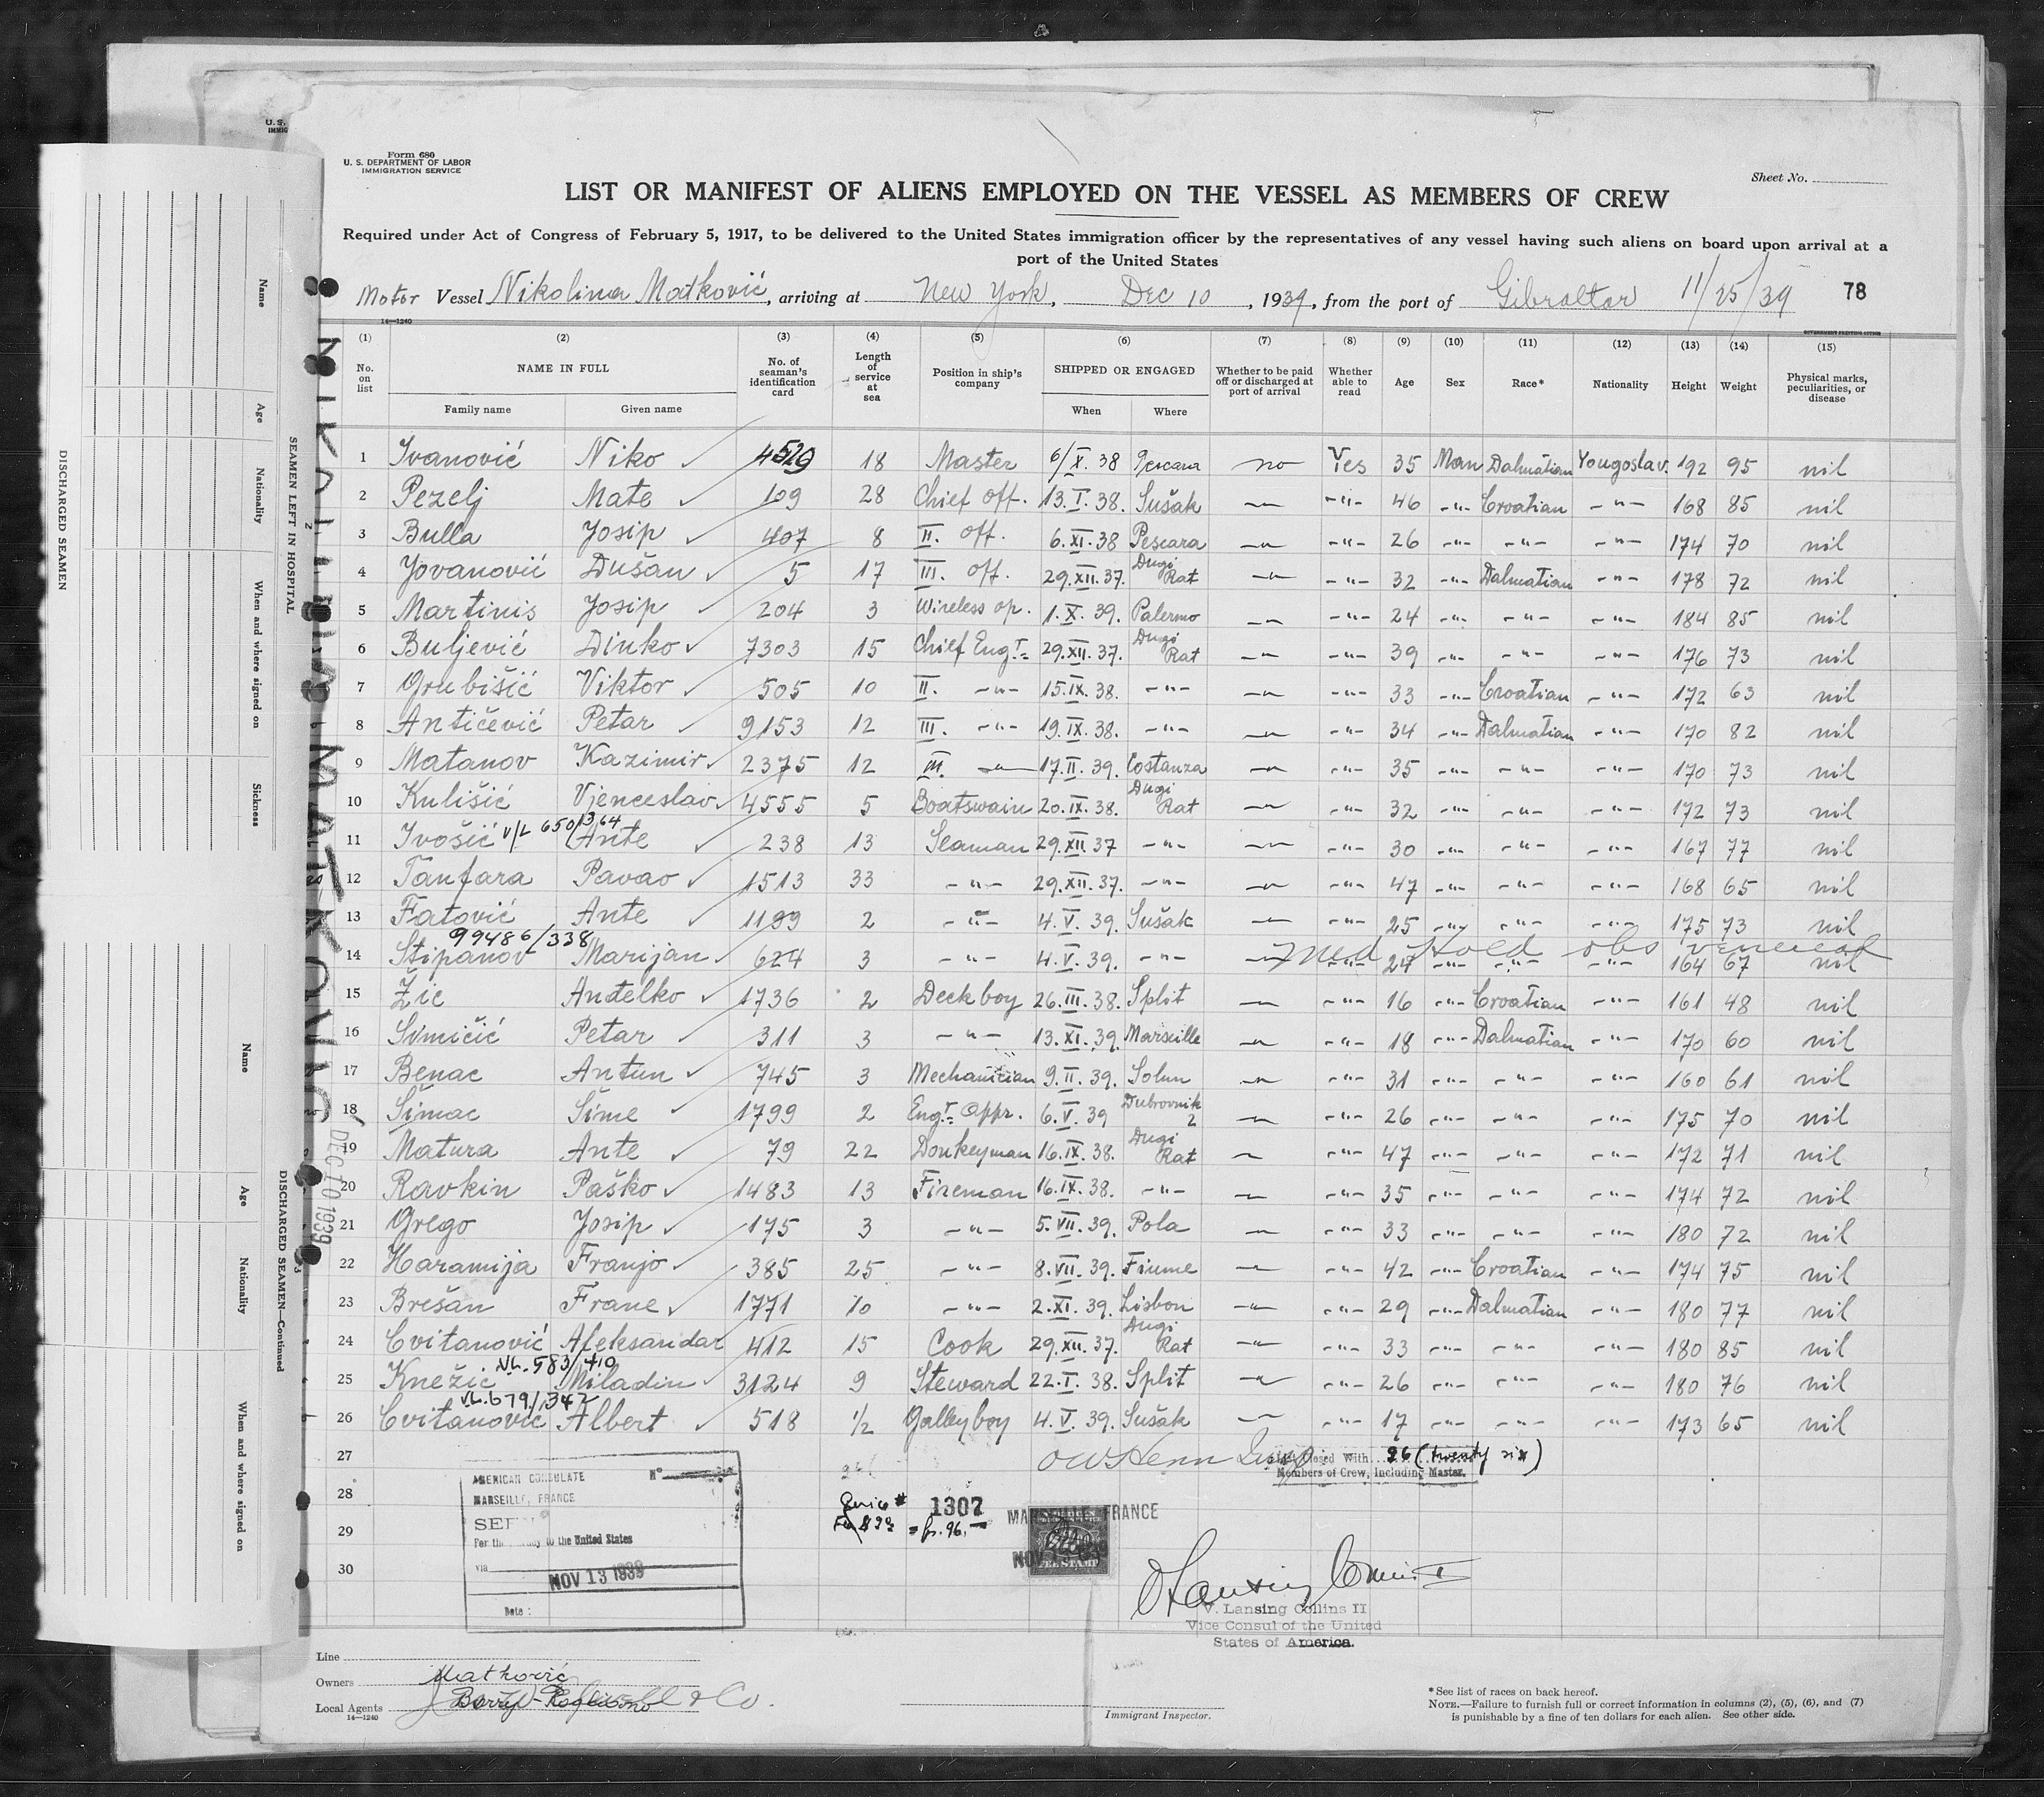 U.S.
IMMIG
Form 680
U. S. DEPARTMENT OF LABOR
IMMIGRATION SERVICE
Sheet No.
LIST OR MANIFEST OF ALIENS EMPLOYED ON THE VESSEL AS MEMBERS OF CREW
Required under Act of Congress of February 5, 1917, to be delivered to the United States immigration officer by the representatives of any vessel having such aliens on board upon arrival at a
port of the United States
Motor Vessel Nikolina Matković, arriving at New York, Dec 10, 1939, from the port of Gibraltar 11/25/39 78
14—1240
GOVERNMENT PRINTING OFFICE
(1) (2) (3) (4) (5) (6) (7) (8) (9) (10) (11) (12) (13) (14) (15)
No. on list NAME IN FULL No. of seaman's identification card Length of service at sea Position in ship's company SHIPPED OR ENGAGED Whether to be paid off or discharged at port of arrival Whether able to read Age Sex Race* Nationality Height Weight Physical marks, peculiarities, or disease
Family name Given name When Where
1 Ivanović Niko 4529 18 Master 6/X. 38 Pescara no Yes 35 Man Dalmatian Yougoslav. 192 95 nil
2 Pezelj Mate 109 28 Chief off. 13.I.38. Sušak —"— -"- 46 -"- Croatian -"- 168 85 nil
3 Bulla Josip 407 8 II. off. 6.XI.38 Pescara —"— -"- 26 -"- -"- -"- 174 70 nil
4 Jovanović Dušan 5 17 III. off. 29.XII.37. Dugi Rat —"— -"- 32 -"- Dalmatian -"- 178 72 nil
5 Martinis Josip 204 3 Wireless op. 1.X.39. Palermo —"— -"- 24 -"- -"- -"- 184 85 nil
6 Buljević Dinko 7303 15 Chief Engr. 29.XII.37. Dugi Rat —"— -"- 39 -"- -"- -"- 176 73 nil
7 Grubišić Viktor 505 10 II. -"- 15.IX.38. -"- —"— -"- 33 -"- Croatian -"- 172 63 nil
8 Antičević Petar 9153 12 III. -"- 19.IX.38. -"- —"— -"- 34 -"- Dalmatian -"- 170 82 nil
9 Matanov Kazimir 2375 12 III. -"- 17.II.39. Costanza —"— -"- 35 -"- -"- -"- 170 73 nil
10 Kulišić Vjenceslav 4555 5 Boatswain 20.IX.38. Dugi Rat —"— -"- 32 -"- -"- -"- 172 73 nil
V/L 650/364
11 Ivošić Ante 238 13 Seaman 29.XII.37 -"- —"— -"- 30 -"- -"- -"- 167 77 nil
12 Tanfara Pavao 1513 33 -"- 29.XII.37. -"- —"— -"- 47 -"- -"- -"- 168 65 nil
13 Fatović Ante 1199 2 -"- 4.V.39. Sušak —"— -"- 25 -"- -"- -"- 175 73 nil
99486/338 med Hold obs venereal
14 Stipanov Marijan 624 3 -"- 4.V.39. -"- —"— -"- 24 -"- -"- -"- 164 67 nil
15 Žic Anđelko 1736 2 Deckboy 26.III.38. Split —"— -"- 16 -"- Croatian -"- 161 48 nil
16 Simičić Petar 311 3 -"- 13.XI.39. Marseille —"— -"- 18 -"- Dalmatian -"- 170 60 nil
17 Benac Antun 745 3 Mechanician 9.II.39. Solun —"— -"- 31 -"- -"- -"- 160 61 nil
18 Šimac Šime 1799 2 Engr. Appr. 6.V.39 Dubrovnik 2 —"— -"- 26 -"- -"- -"- 175 70 nil
19 Matura Ante 79 22 Donkeyman 16.IX.38. Dugi Rat —"— -"- 47 -"- -"- -"- 172 71 nil
20 Ravkin Paško 1483 13 Fireman 16.IX.38. -"- —"— -"- 35 -"- -"- -"- 174 72 nil
21 Grego Josip 175 3 -"- 5.VII.39. Pola —"— -"- 33 -"- -"- -"- 180 72 nil
22 Haramija Franjo 385 25 -"- 8.VII.39. Fiume —"— -"- 42 -"- Croatian -"- 174 75 nil
23 Brešan Frane 1771 10 -"- 2.XI.39. Lisbon —"— -"- 29 -"- Dalmatian -"- 180 77 nil
24 Cvitanović Aleksandar 412 15 Cook 29.XII.37. Dugi Rat —"— -"- 33 -"- -"- -"- 180 85 nil
VL. 583/410
25 Knežić Miladin 3124 9 Steward 22.I.38. Split —"— -"- 26 -"- -"- -"- 180 76 nil
VL. 679/342
26 Cvitanović Albert 518 1/2 Galleyboy 4.V.39. Sušak —"— -"- 17 -"- -"- -"- 173 65 nil
27
Closed With 26 (twenty six)
Members of Crew, Including Master.
28
29
30
AMERICAN CONSULATE No
MARSEILLE, FRANCE
to the United States
via
NOV 13 1939
Date:
1307
= fr. 96.—
MARSEILLE, FRANCE
NOV
V. Lansing Collins II
Vice Consul of the United
States of America.
Line
Owners Matković
Local Agents
14—1240
Immigrant Inspector.
*See list of races on back hereof.
NOTE.—Failure to furnish full or correct information in columns (2), (5), (6), and (7)
is punishable by a fine of ten dollars for each alien. See other side.
NIKOLINA MATKOVIC
DEC 10 1939
DISCHARGED SEAMEN
SEAMEN LEFT IN HOSPITAL
Name
Age
Nationality
When and where signed on
Sickness
DISCHARGED SEAMEN—Continued
Name
Age
Nationality
When and where signed on